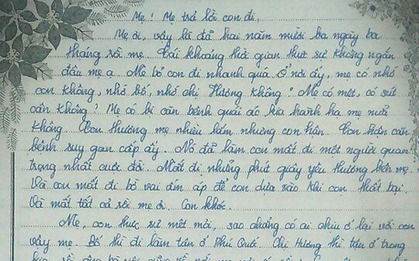 Mẹ! Mẹ trả lời con đi.
Mẹ ơi, vậy là đã hai năm mười ba ngày ba
tháng rồi mẹ. Cái khoảng thời gian thực sự không ngắn
đâu mẹ ạ. Mẹ bỏ con đi nhanh quá. Ở nơi ấy, mẹ có nhớ
con không, nhớ bố, nhớ chị Hường không? Mẹ có mệt, có sút
cân không? Mẹ có bị căn bệnh quái ác kia hành hạ mẹ nữa
không. Con thương mẹ nhiều lắm nhưng con hận. Con hận căn
bệnh suy gan cấp ấy. Nó đã làm con mất đi một người quan
trọng nhất cuộc đời. Mất đi những phút giây yêu thương bên mẹ.
Và con mất đi bờ vai ấm áp để con dựa vào khi con thất bại.
Và mất tất cả rồi mẹ ơi. Con khóc.
Mẹ, con thực sự mệt mỏi, sao chẳng có ai chịu ở lại với con
vậy mẹ. Bố thì đi làm tận ở Phú Quê. Chị Hường thì tận ở trong